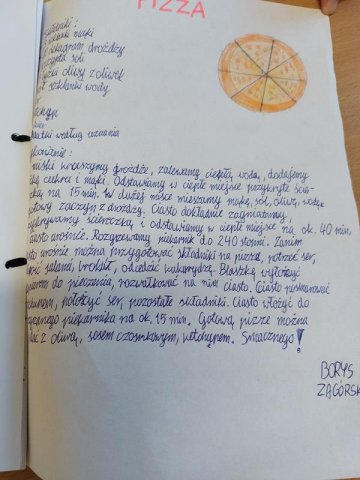 PIZZA
składniki:
szklanki mąki
dekagram drożdży
soli
łyżki oliwy z oliwek
szklanki wody
ketchup
dodatki według uznania
miski kruszymy drożdże, zalewamy ciepłą wodą, dodajemy
cukru i mąki. Odstawiamy w ciepłe miejsce przykryte
na 15 min. W dużej misce mieszamy mąkę, sól, oliwę, wodę
gotowy zaczyn z drożdży. Ciasto dokładnie zagniatamy,
przykrywamy ściereczką i odstawiamy w ciepłe miejsce na ok. 40 min,
ciasto urośnie. Rozgrzewamy piekarnik do 240 stopni. Zanim
ciasto urośnie można przygotować składniki na pizzę, potrzeć ser,
salami, brokuł, odcedzić kukurydzę. Blaszkę wyłożyć
papierem do pieczenia, rozwałkować na nim ciasto. Ciasto posmarować
położyć ser, pozostałe składniki. Ciasto włożyć do
piekarnika na ok. 15 min. Gotową pizzę można
z oliwą, sosem czosnkowym, ketchupem. Smacznego!
BORYS
ZAGÓRSK